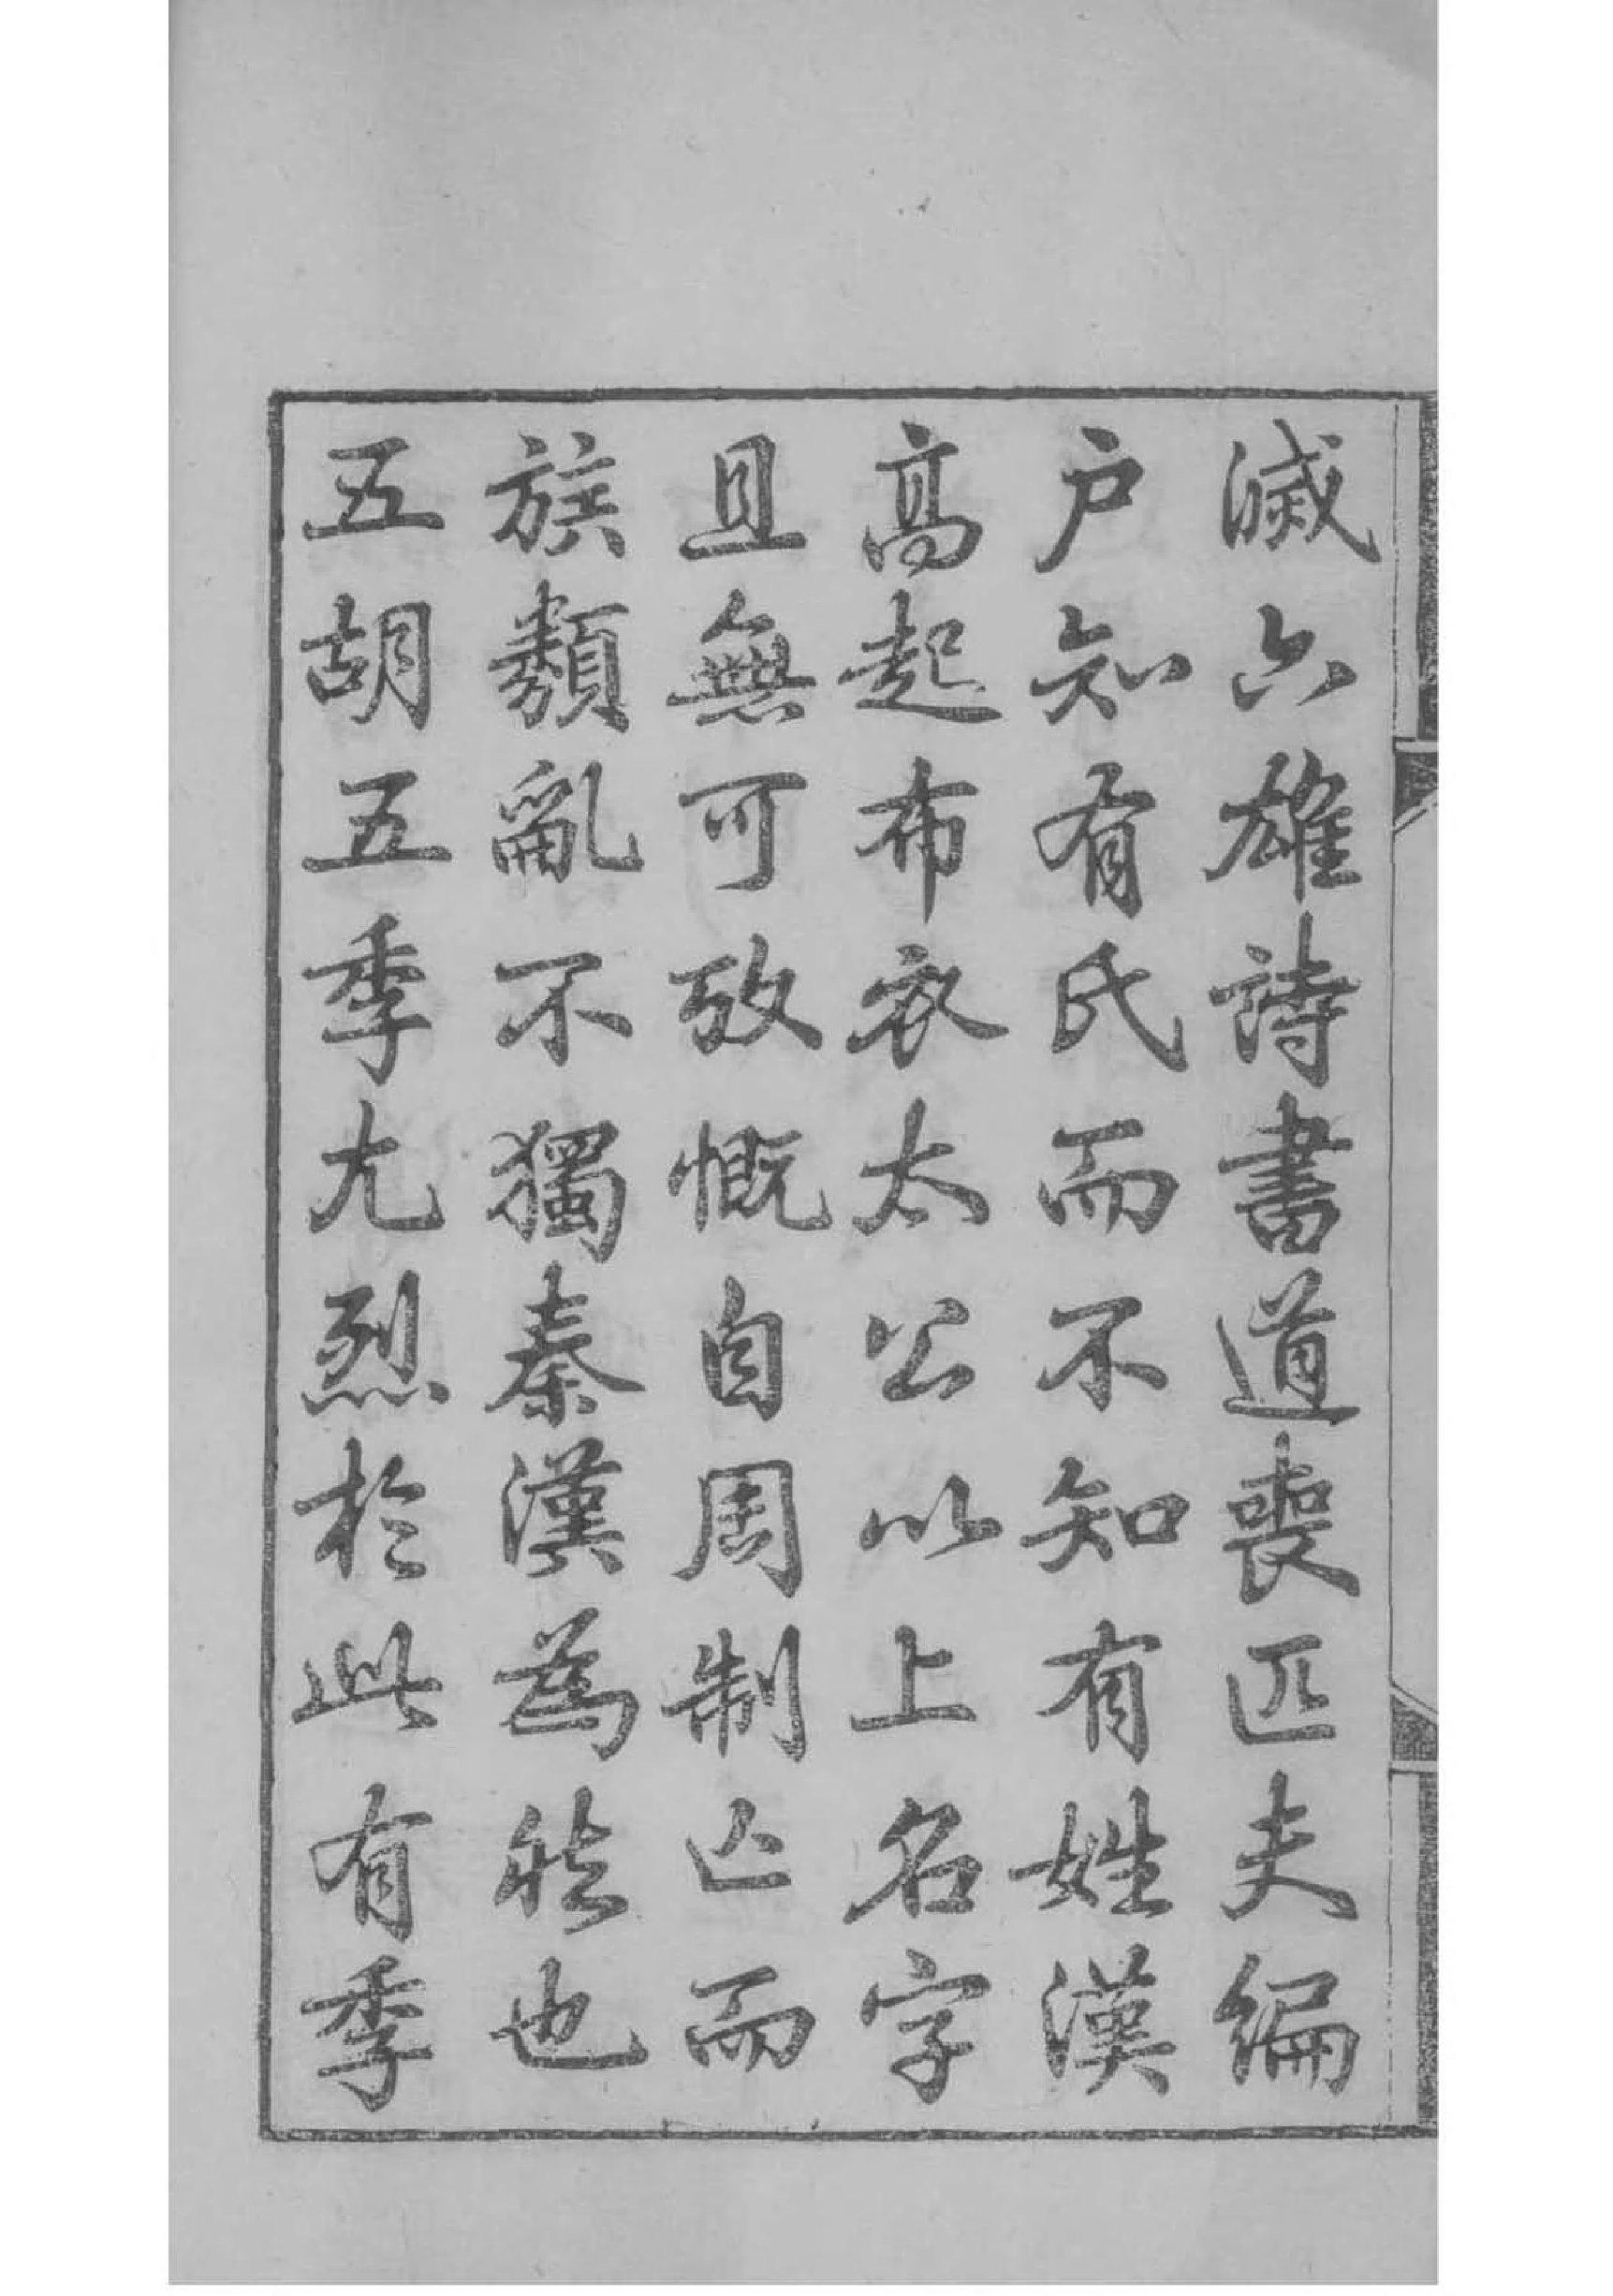 滅六雄詩書道喪匹夫編
户知有氏而不知有姓漢
髙起布衣太公以上名字
且無可攷慨自周制亡而
族類亂不獨秦漢為然也
五胡五季尤烈於此有季